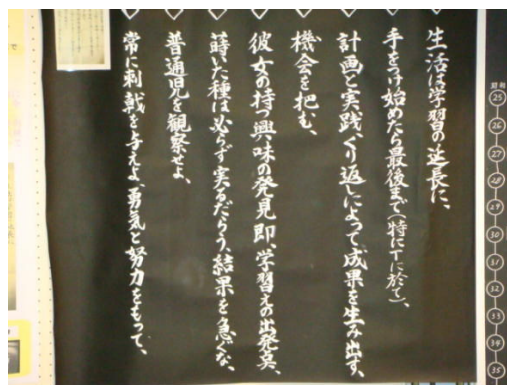 生活は学習の延長に、
手をつけ始めたら最後まで(特にTに於て)、
計画と実践くり返しによって成果を生み出す、
機会を把む、
彼女の持つ興味の発見即、学習えの出発点、
蒔いた種は必らず実るだらう、結果を急ぐな、
普通児を観察せよ、
常に刺戟を与えよ、勇気と努力をもって、
昭和
25
26
27
28
29
30
31
32
33
34
35